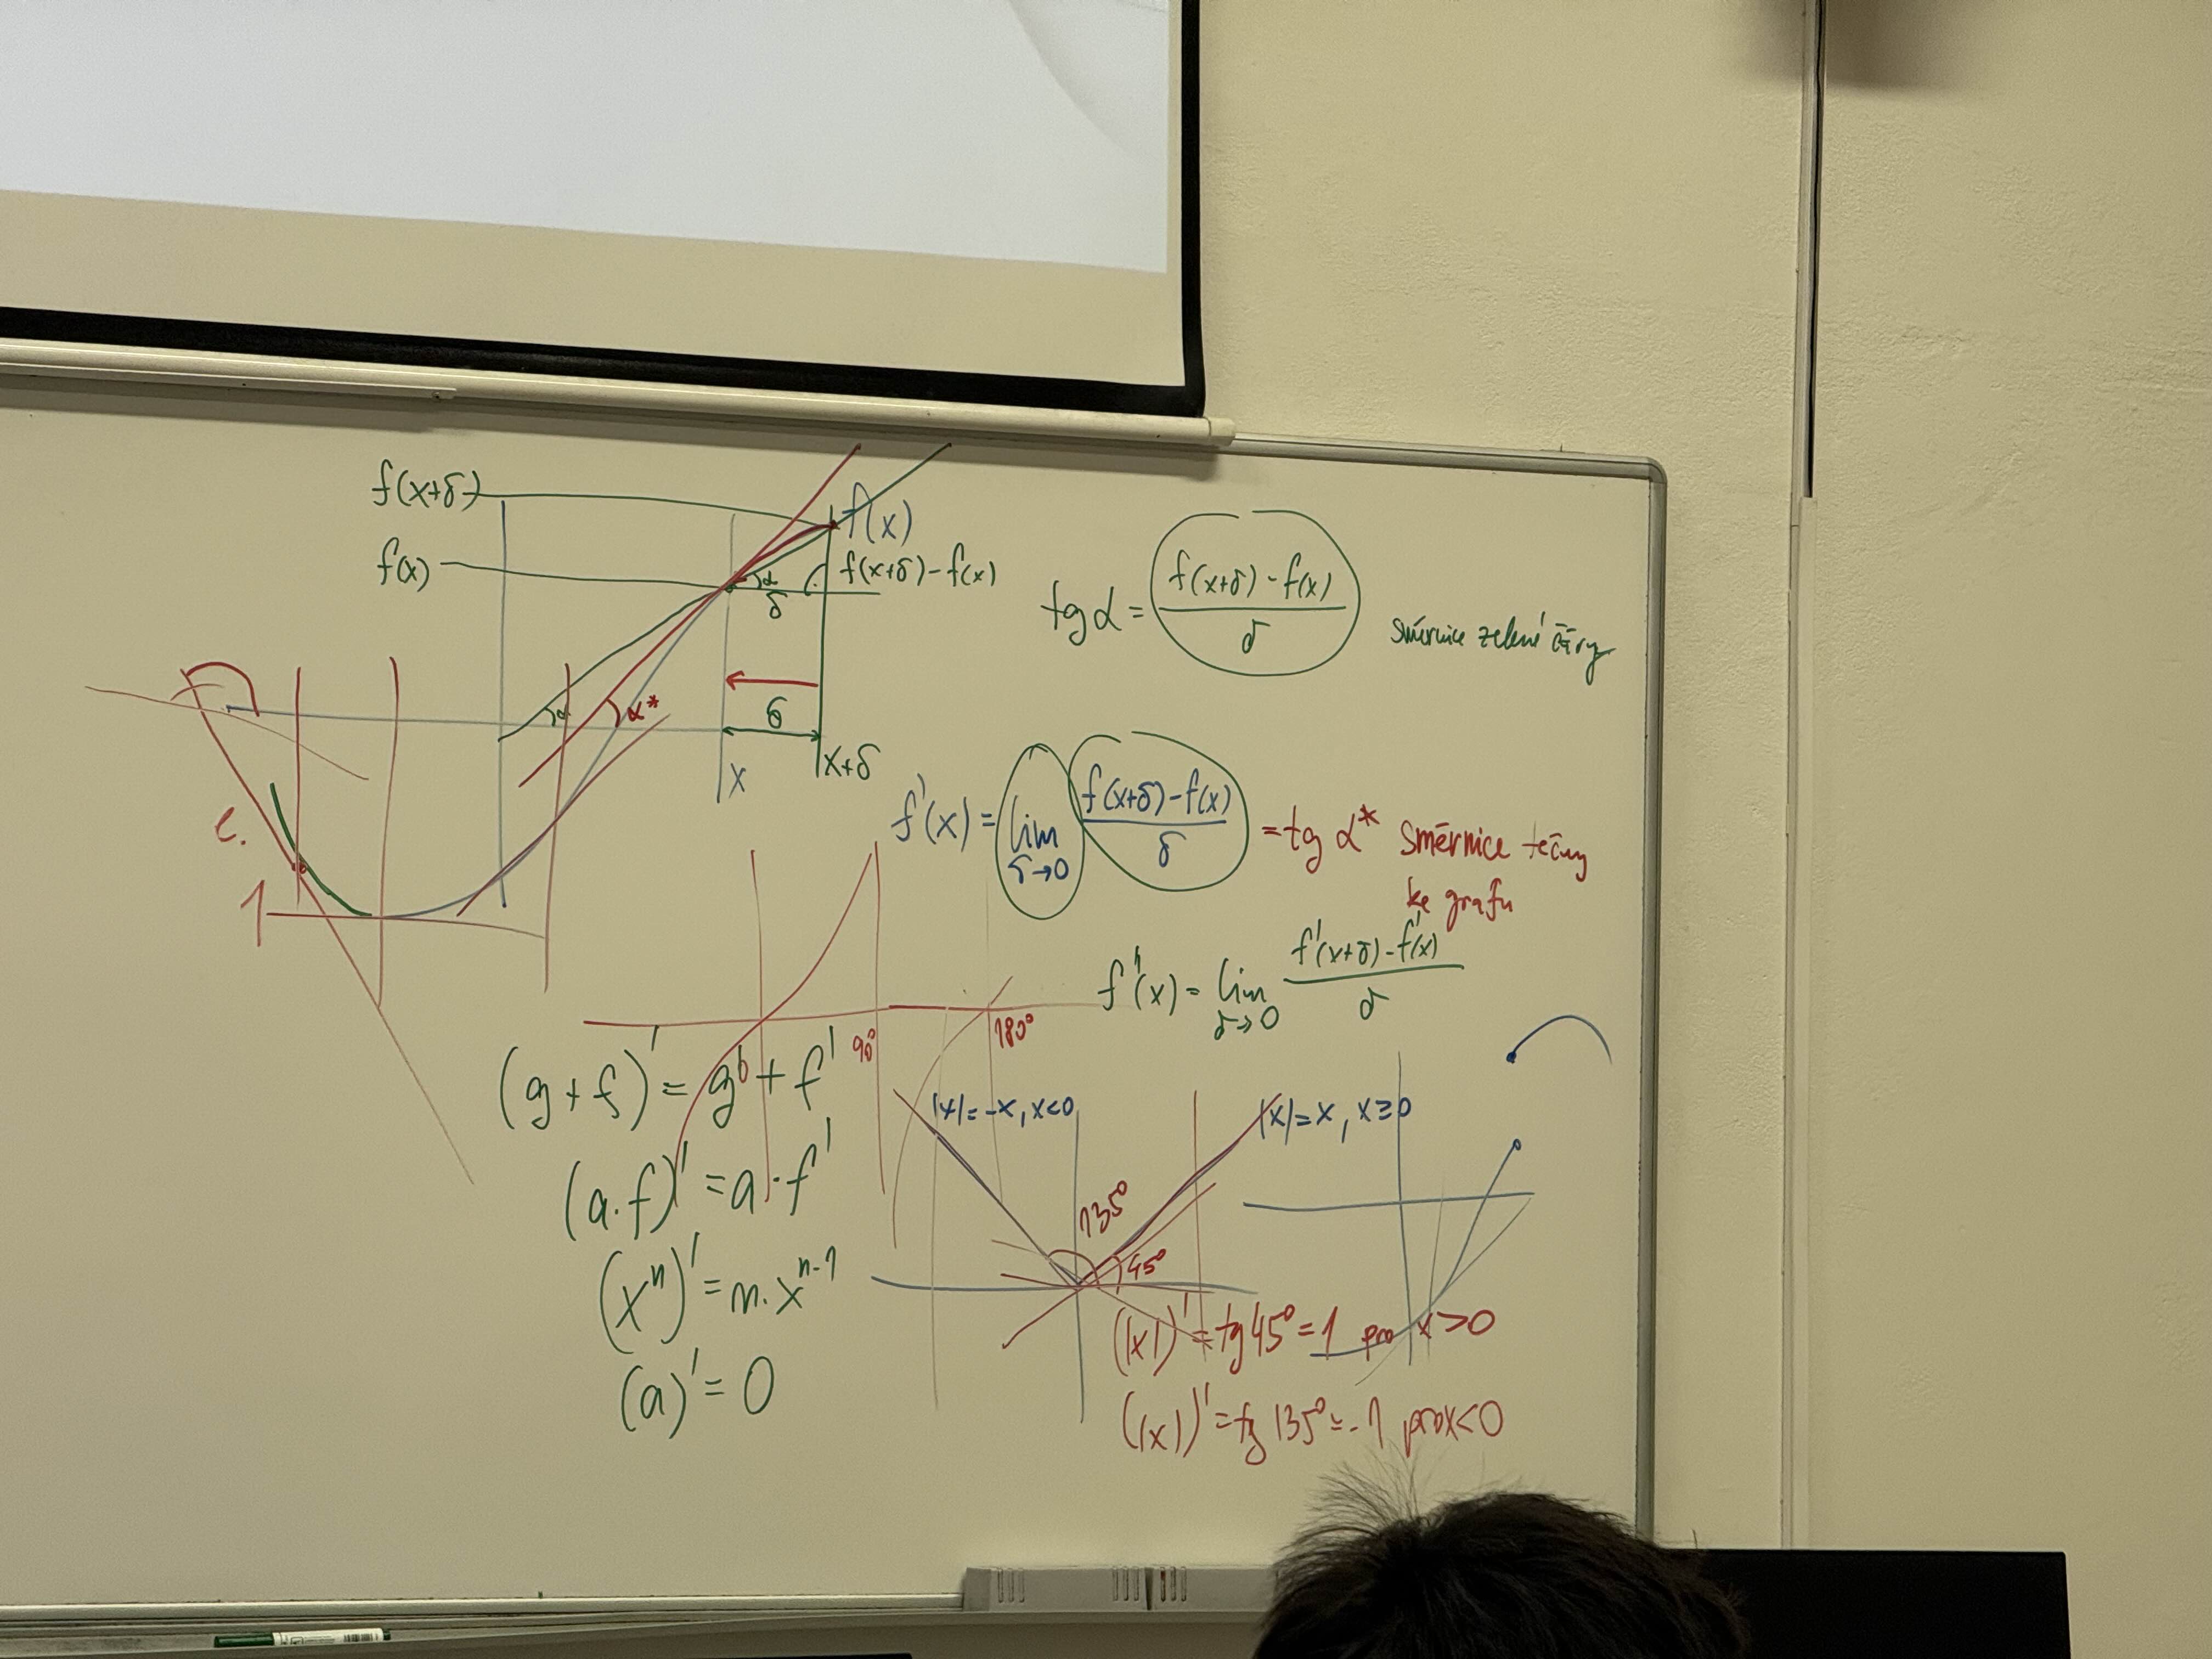 f(x+δ)
f(x)
f(x)
α
δ
f(x+δ)-f(x)
α
α*
δ
x
x+δ
tg α = f(x+δ)-f(x) / δ
směrnice zelené čáry
f'(x) = lim δ→0 f(x+δ)-f(x) / δ = tg α* směrnice tečny
ke grafu
f''(x) = lim δ→0 f'(x+δ)-f'(x) / δ
1
90°
180°
(g+f)' = g'+f'
(a.f)' = a·f'
(xⁿ)' = n.xⁿ⁻¹
(a)' = 0
|x|=-x, x<0
|x|=x, x≥0
135°
45°
(|x|)' = tg 45° = 1 pro x>0
(|x|)' = tg 135° = -1 pro x<0